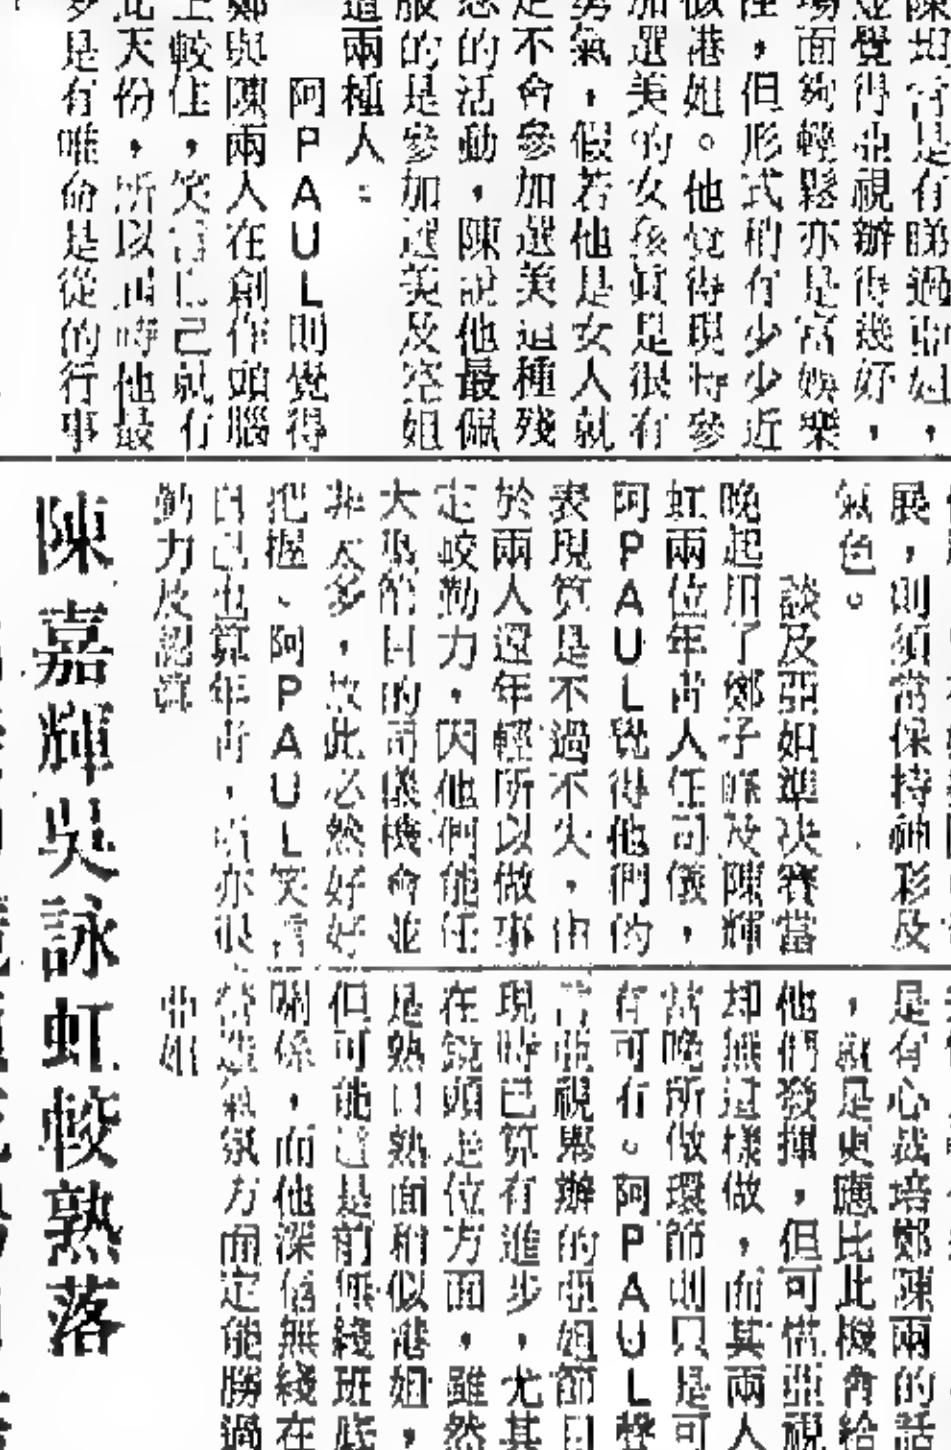 是有睇過亞姐，
並覺得亞視辦得幾好，
場面夠輕鬆亦是富娛樂
性，但形式稍有少少近
似港姐。他覺得現時參
加選美的女孩真是很有
勇氣，假若他是女人就
定不會參加選美這種殘
忍的活動，陳說他最佩
服的是參加選美及空姐
這兩種人。
阿PAUL則覺得
鄭與陳兩人在創作頭腦
上較佳，笑言自己就冇
此天份，所以有時他最
多是有唯命是從的行事
展，則須常保持神彩及
氣色。
談及亞姐準决賽當
晚起用了鄭子 及陳輝
虹兩位年青人任司儀，
阿PAUL覺得他們的
表現算是不過不失，由
於兩人還年輕所以做事
定較勤力，因他們能任
大型節目的司儀機會並
非太多，故此必然好好
把握、阿PAUL笑言
自己也算年青， 亦很
勤力及認眞
陳嘉輝吳詠虹較熟落
是有心栽培鄭陳兩的話
，就是更應比此機會給
他們發揮，但可惜亞視
却無這樣做，而其兩人
當晚所做環節則只是可
有可冇。阿PAUL聲
言亞視舉辦的亞姐節目
現時已算有進步，尤其
在鏡頭走位方面，雖然
是熟口熟面稍似港姐，
但可能這是前無綫班底
關係，而他深信無綫在
營造氣氛方面定能勝過
亞姐